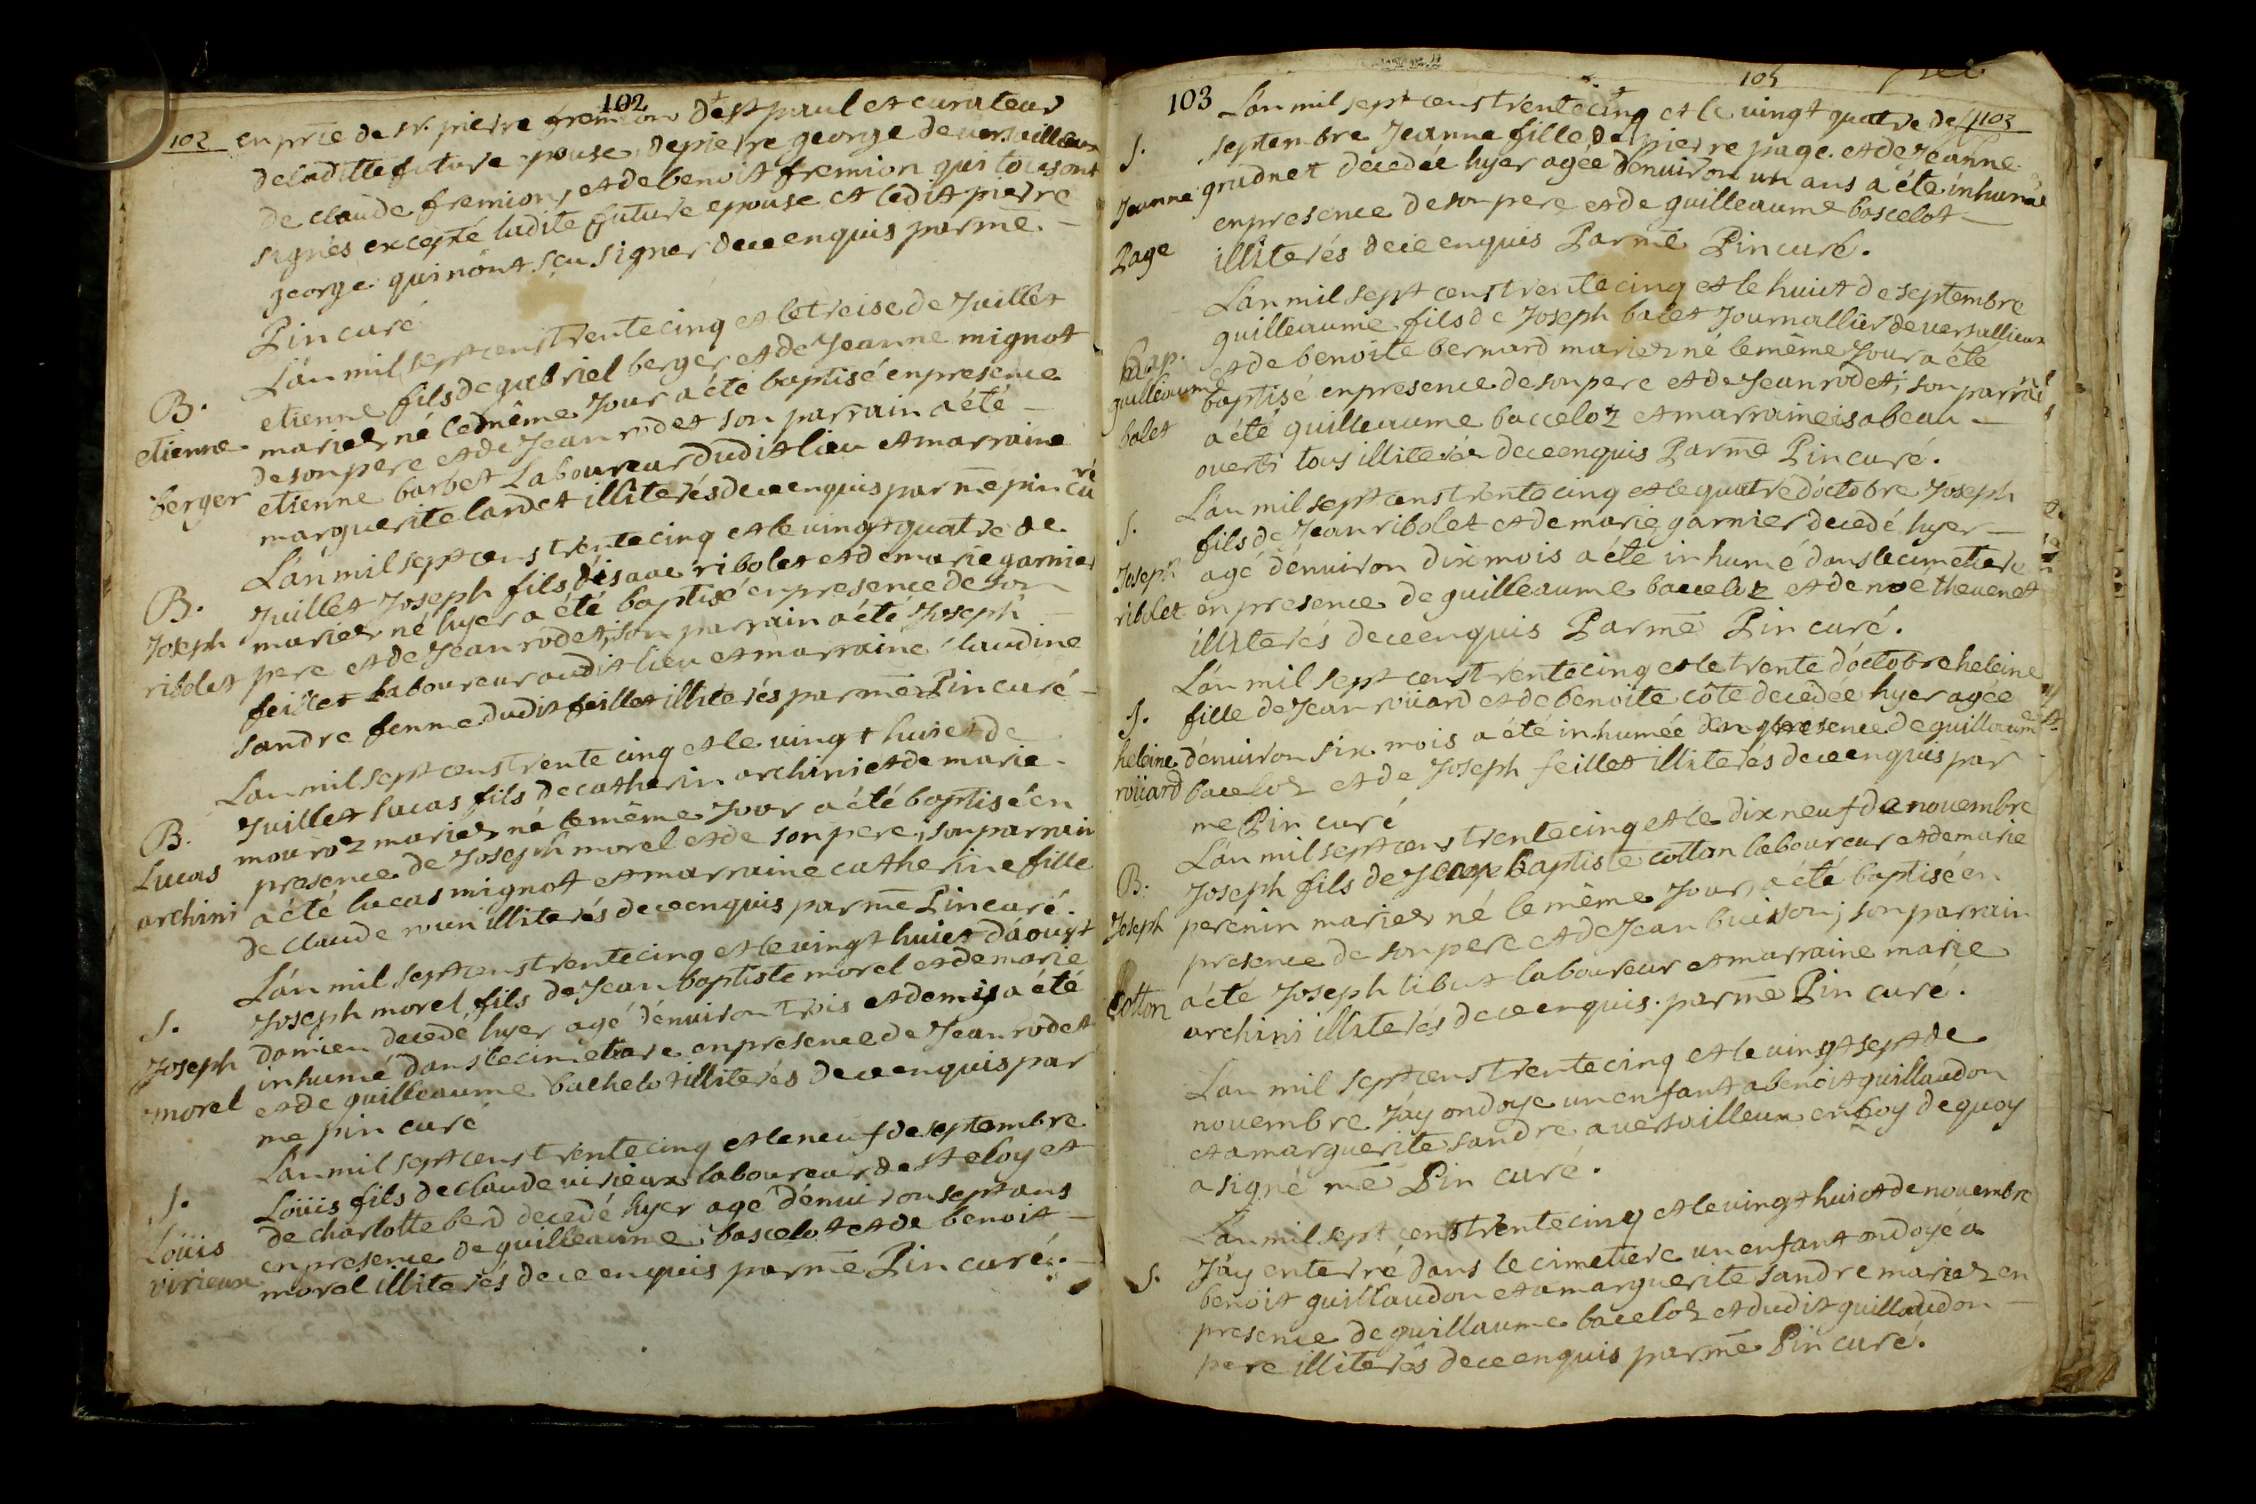 102
102 en pnce de sr. pierre fremion de st paul et curateur
de laditte future epouse, de pierre george de versailleux
de claude fremion, et de benoit fremion qui tous ont
signés excepté ladite future epouse et ledit pierre
george qui nont sçu signer de ce enquis par me. —
Pin curé
B.
etienne
berger
L'an mil sept cens trente cinq et le treise de Juillet
etienne fils de gabriel berger et de Jeanne mignot
mariez né le même Jour a été baptisé en presence
de son pere et de Jean rodet son parrain a été —
etienne barbet Laboureur dudit lieu et marraine
marguerite landet illiterés de ce enquis par me pin curé
B.
Joseph
ribolet
L'an mil sept cens trente cinq et le vingt quatre de
Juillet Joseph fils d'isaac ribolet et de marie garnier
mariez né hyer a été baptisé en presence de son
pere et de Jean rodet, son parrain a été Joseph —
feillet Laboureur audit lieu et marraine claudine
sandre femme dudit feillet illiterés par me Pin curé —
B.
Lucas
archini
L'an mil sept cens trente cinq et le vingt huict de
Juillet Lucas fils de catherin archini et de marie —
mouroz mariez né le même Jour a été baptisé en
presence de Joseph morel et de son pere, son parrain
a été lucas mignot et marraine catherine fille
de claude nouri illiterés de ce enquis par me Pin curé.
S.
Joseph
morel
L'an mil sept cens trente cinq et le vingt huict d'aoust
Joseph morel fils de Jean baptiste morel et de marie
damien decedé hyer agé d'environ trois et demis a été
inhumé dans le cimetiere en presence de Jean rodet
et de guilleaume bachelot illiterés de ce enquis par
me pin curé
S.
Loüis
virieux
L'an mil sept cens trente cinq et le neuf de septembre
Loüis fils de claude virieux laboureur de st eloy et
de charlotte berd decedé hyer agé d'environ sept ans
en presence de guilleaume bascelot et de benoit —
morel illiterés de ce enquis par me Pin curé. —
103
105
103
S.
Jeanne
Page
L'an mil sept cens trente cinq et le vingt quatre de
septembre Jeanne fille de pierre page et de Jeanne
gradnet decedée hyer agée d'environ un ans a été inhumée
en presence de son pere et de guilleaume bascelot —
illiterés de ce enquis Par me Pin curé.
bap.
guilleaume
balet
L'an mil sept cens trente cinq et le huict de septembre
guilleaume fils de Joseph balet Journallier de versallieux
et de benoite bernard mariez né le même Jour a été
baptisé en presence de son pere et de Jean rodet, son parrain
a été guilleaume bacceloz et marraine isabeau —
ouerti tous illiterés de ce enquis Par me Pin curé.
S.
Joseph
ribolet
L'an mil sept cens trente cinq et le quatre d'octobre Joseph
fils de Jean ribolet et de marie garnier decedé hyer —
agé d'environ dix mois a été inhumé dans le cimetiere
en presence de guilleaume bacceloz et de noe thevenet
illiterés de ce enquis Par me Pin curé.
S.
heleine
roüard
L'an mil sept cens trente cinq et le trente d'octobre heleine
fille de Jean roüard et de benoite côte decedée hyer agée
d'environ six mois a été inhumée en presence de guilleaume
baceloz et de Joseph feillet illiterés de ce enquis par
me Pin curé
B.
Joseph
Cotton
L'an mil sept cens trente cinq et le dix neuf de novembre
Joseph fils de Jean Baptiste cotton laboureur et de marie
perenin mariez né le même Jour a été baptisé en
presence de son pere et de Jean buisson; son parrain
a été Joseph libut laboureur et marraine marie
archini illiterés de ce enquis. par me Pin curé.
L'an mil sept cens trente cinq et le vingt sept de
novembre J'ay ondoye un enfant a benoit guillaudon
et a marguerite sandre a versailleux en foy de quoy
a signé me Pin curé.
S.
L'an mil sept cens trente cinq et le vingt huict de novembre
J'ay enterré dans le cimetiere un enfant ondoyé a
benoit guillaudon et a marguerite sandre mariez en
presence de guillaume baceloz et dudit guillaudon —
pere illiterés de ce enquis par me Pin curé.